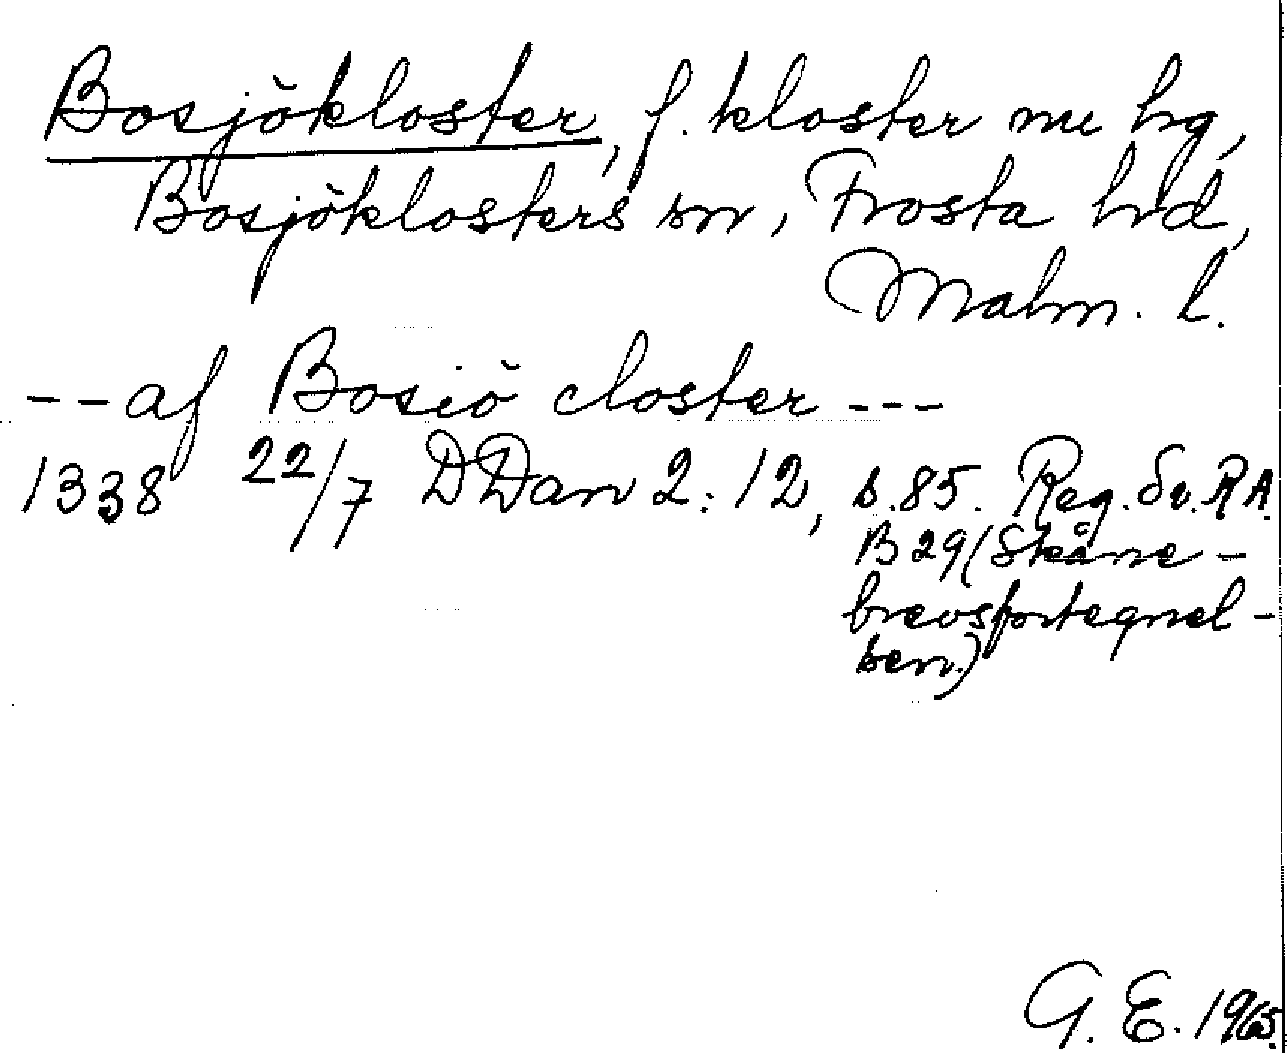 Bosjökloster, f. kloster nu hg,
Bosjöklosters sn, Frosta hd,
Malm. l.
--af Bosiö closter ---
1338 22/7 DDan 2:12, s.85. Reg. Sv. RA.
B29 (Skåne-
brevsfortegnel-
sen.)
G. E. 1965.